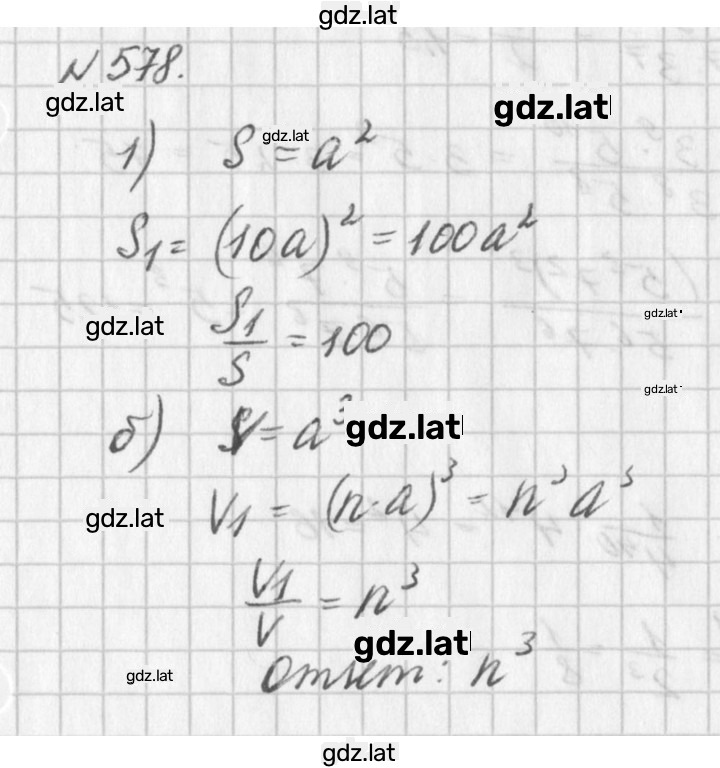 gdz.lat
N 578.
gdz.lat
gdz.lat
1) S = a²
gdz.lat
S₁ = (10a)² = 100a²
gdz.lat
gdz.lat
S₁/S = 100
gdz.lat
б) V = a³
gdz.lat
gdz.lat
V₁ = (n·a)³ = n³a³
V₁/V = n³
gdz.lat
gdz.lat
Ответ: n³
gdz.lat